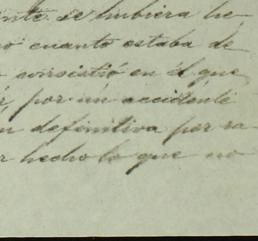 nte se hubiera he-
o cuanto estaba de
consistió en el que
r, por un accidente
n definitiva por ra-
r hecho lo que no